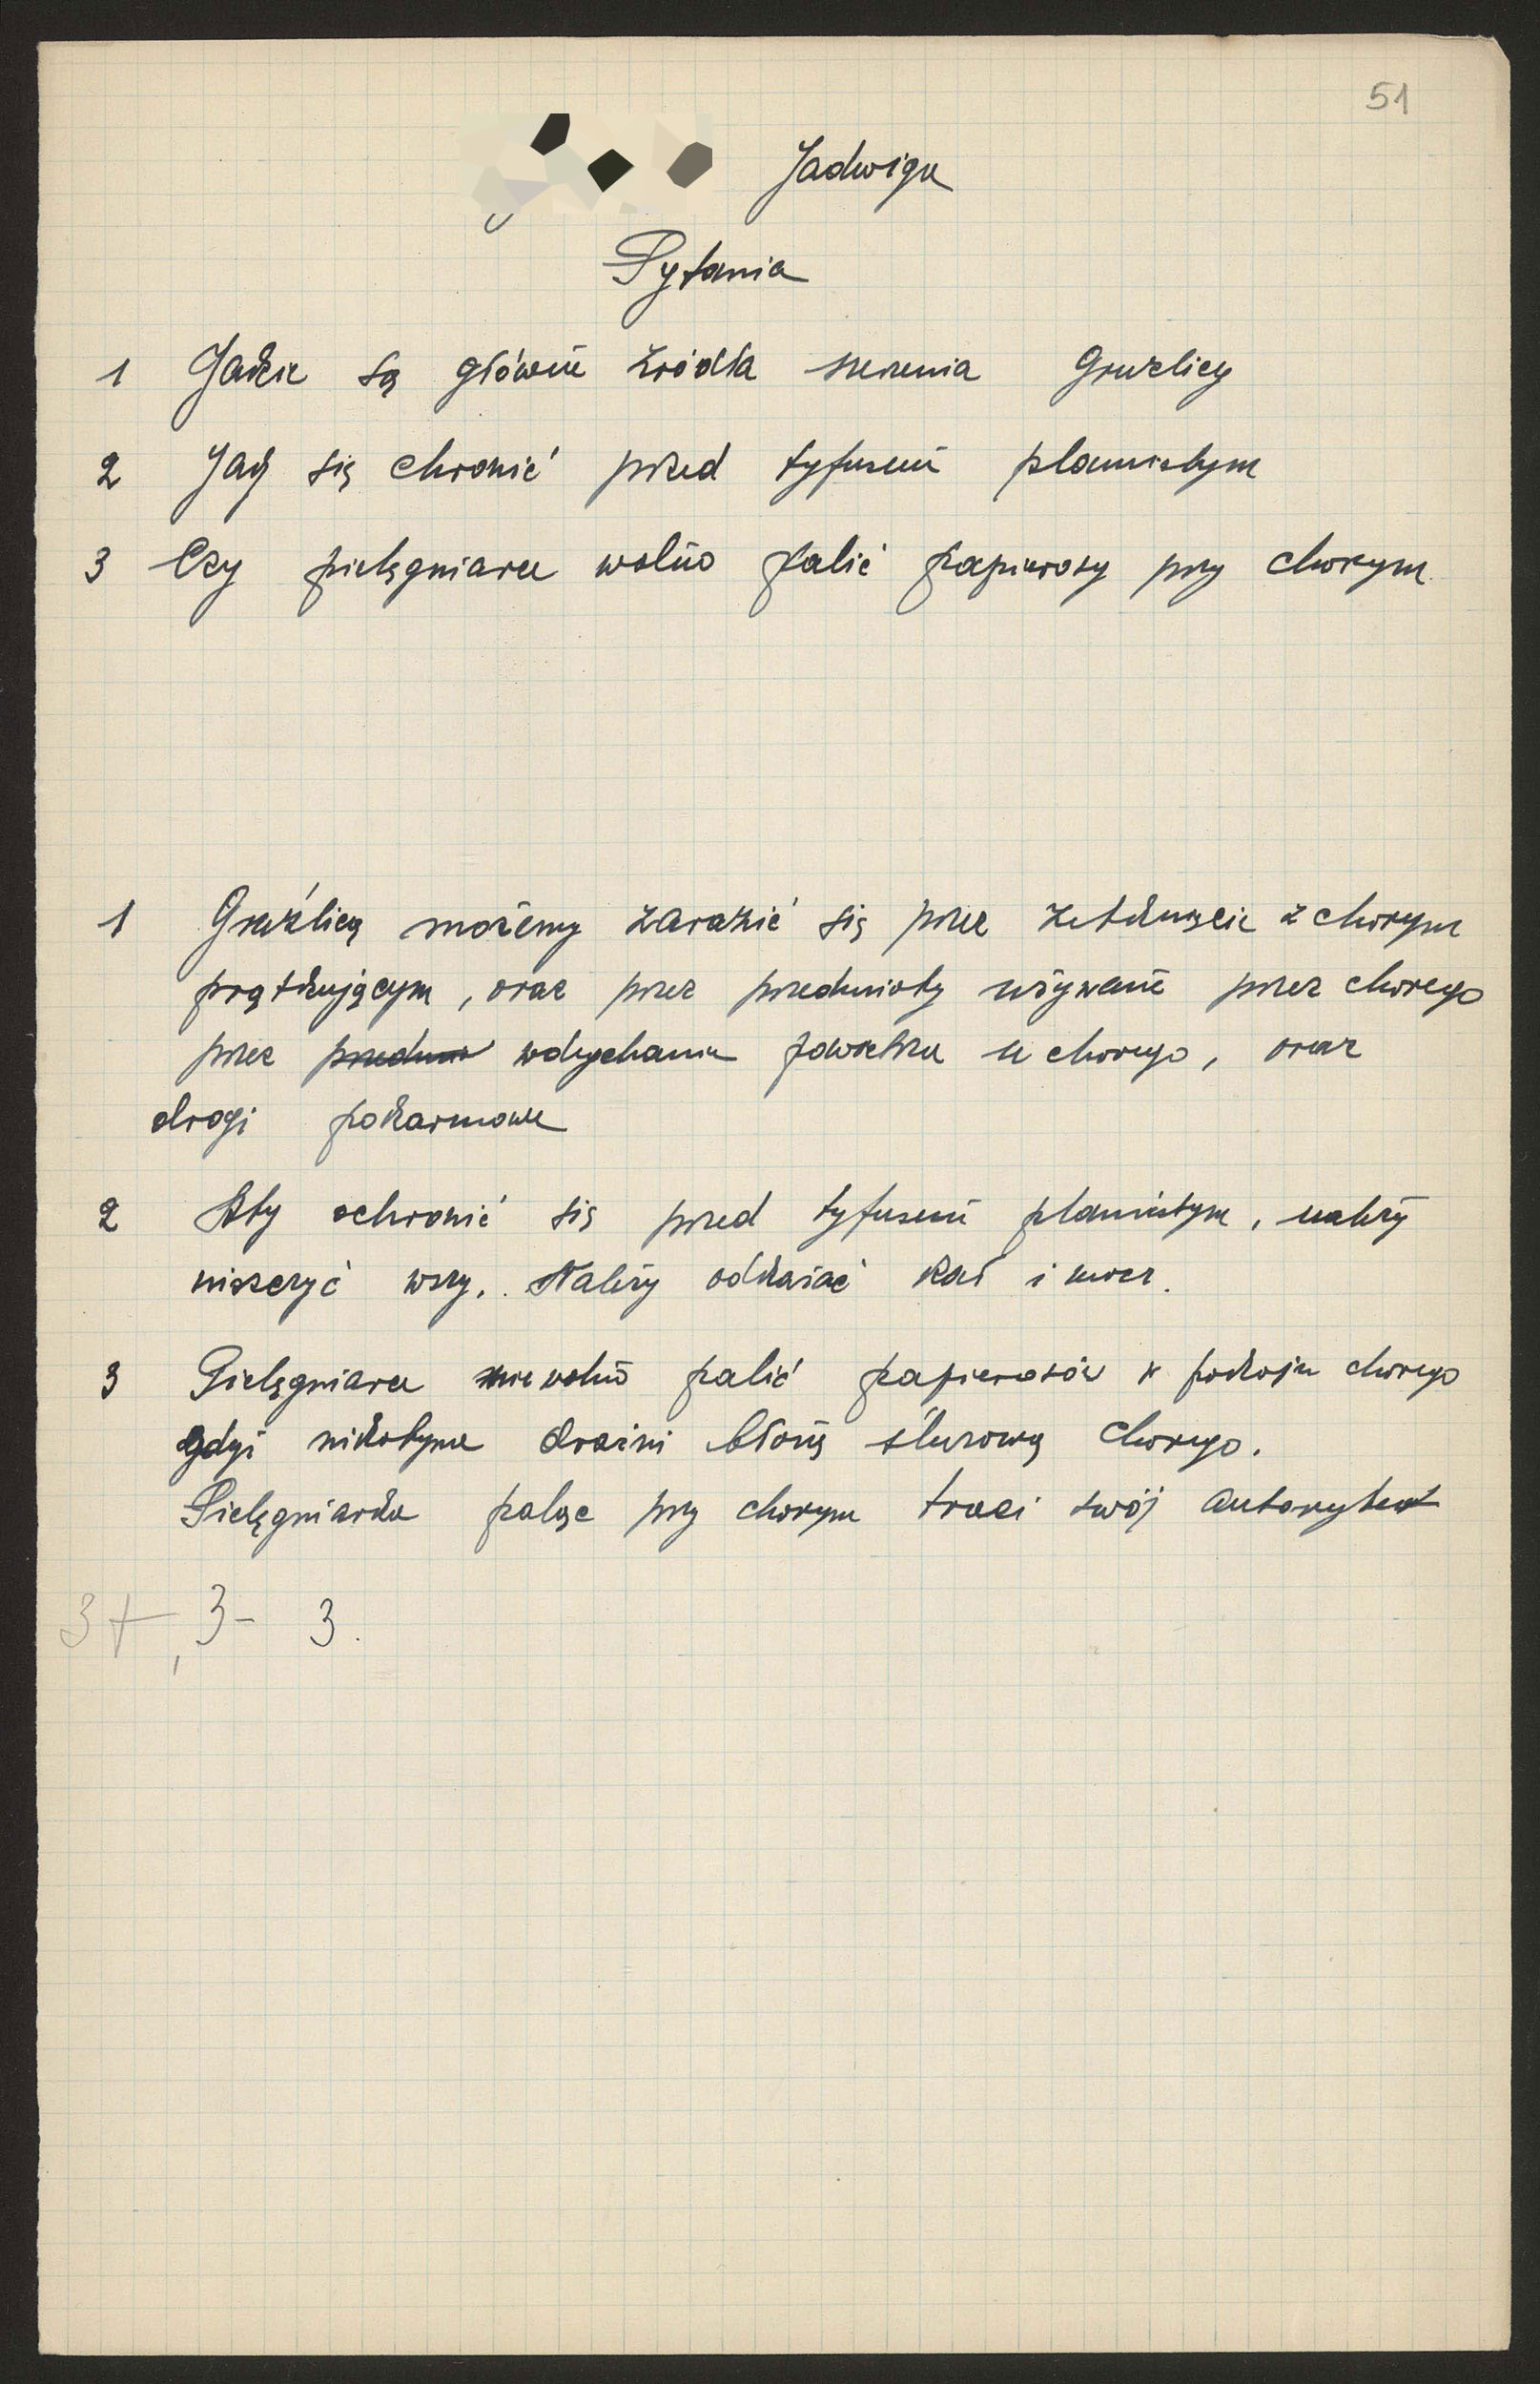 51
Jadwiga
Pytania
1 Jakie są główne źródła szerzenia Gruźlicy
2 Jak się chronić przed tyfusem plamistym
3 Czy pielęgniarce wolno palić papierosy przy chorym
1 Gruźlicą możemy zarazić się przez zetknięcie z chorym
prątkującym, oraz przez przedmioty używane przez chorego
przez wdychanie powietrza u chorego, oraz
drogi pokarmowe
2 Aby ochronić się przed tyfusem plamistym, należy
niszczyć wszy. Należy odkażać kał i mocz.
3 Pielęgniarce nie wolno palić papierosów w pokoju chorego
gdyż nikotyna drażni błonę śluzową chorego.
Pielęgniarka paląc przy chorym traci swój autorytet
3+, 3- 3.